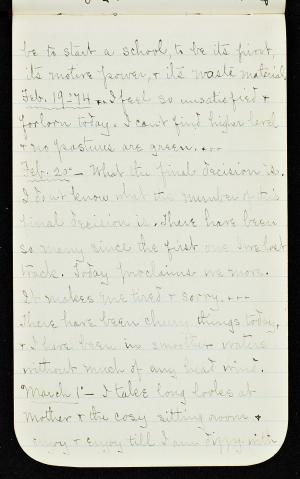 be to start a school, to be its pivot,
its motive power, & its waste material.
Feb. 19-'74 ... I feel so unsatisfied &
forlorn today. I can't find higher level
& no pastures are green. ...
Feb. 20 - What the final decision is.
I don't know what the number of this
final decision is. There have been
so many since the first one I've lost
track. Today proclaims one more.
It makes me tired & sorry. ...
There have been cheery things today,
& I have been in smoother waters
without much of any head wind.
"March 1" - I take long looks at
Mother & the cosy sitting room &
enjoy & enjoy till I am dippy with